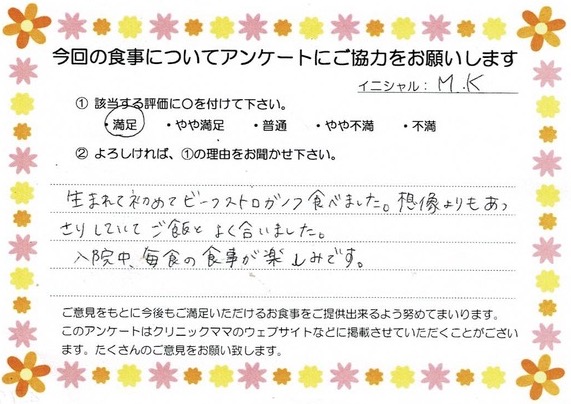 今回の食事についてアンケートにご協力をお願いします
イニシャル： M.K
① 該当する評価に〇を付けて下さい。
・満足 ・やや満足 ・普通 ・やや不満 ・不満
② よろしければ、①の理由をお聞かせ下さい。
生まれて初めてビーフストロガノフ食べました。想像よりもあっ
さりしていてご飯とよく合いました。
入院中、毎食の食事が楽しみです。
ご意見をもとに今後もご満足いただけるお食事をご提供出来るよう努めてまいります。
このアンケートはクリニックママのウェブサイトなどに掲載させていただくことがござい
ます。たくさんのご意見をお願い致します。